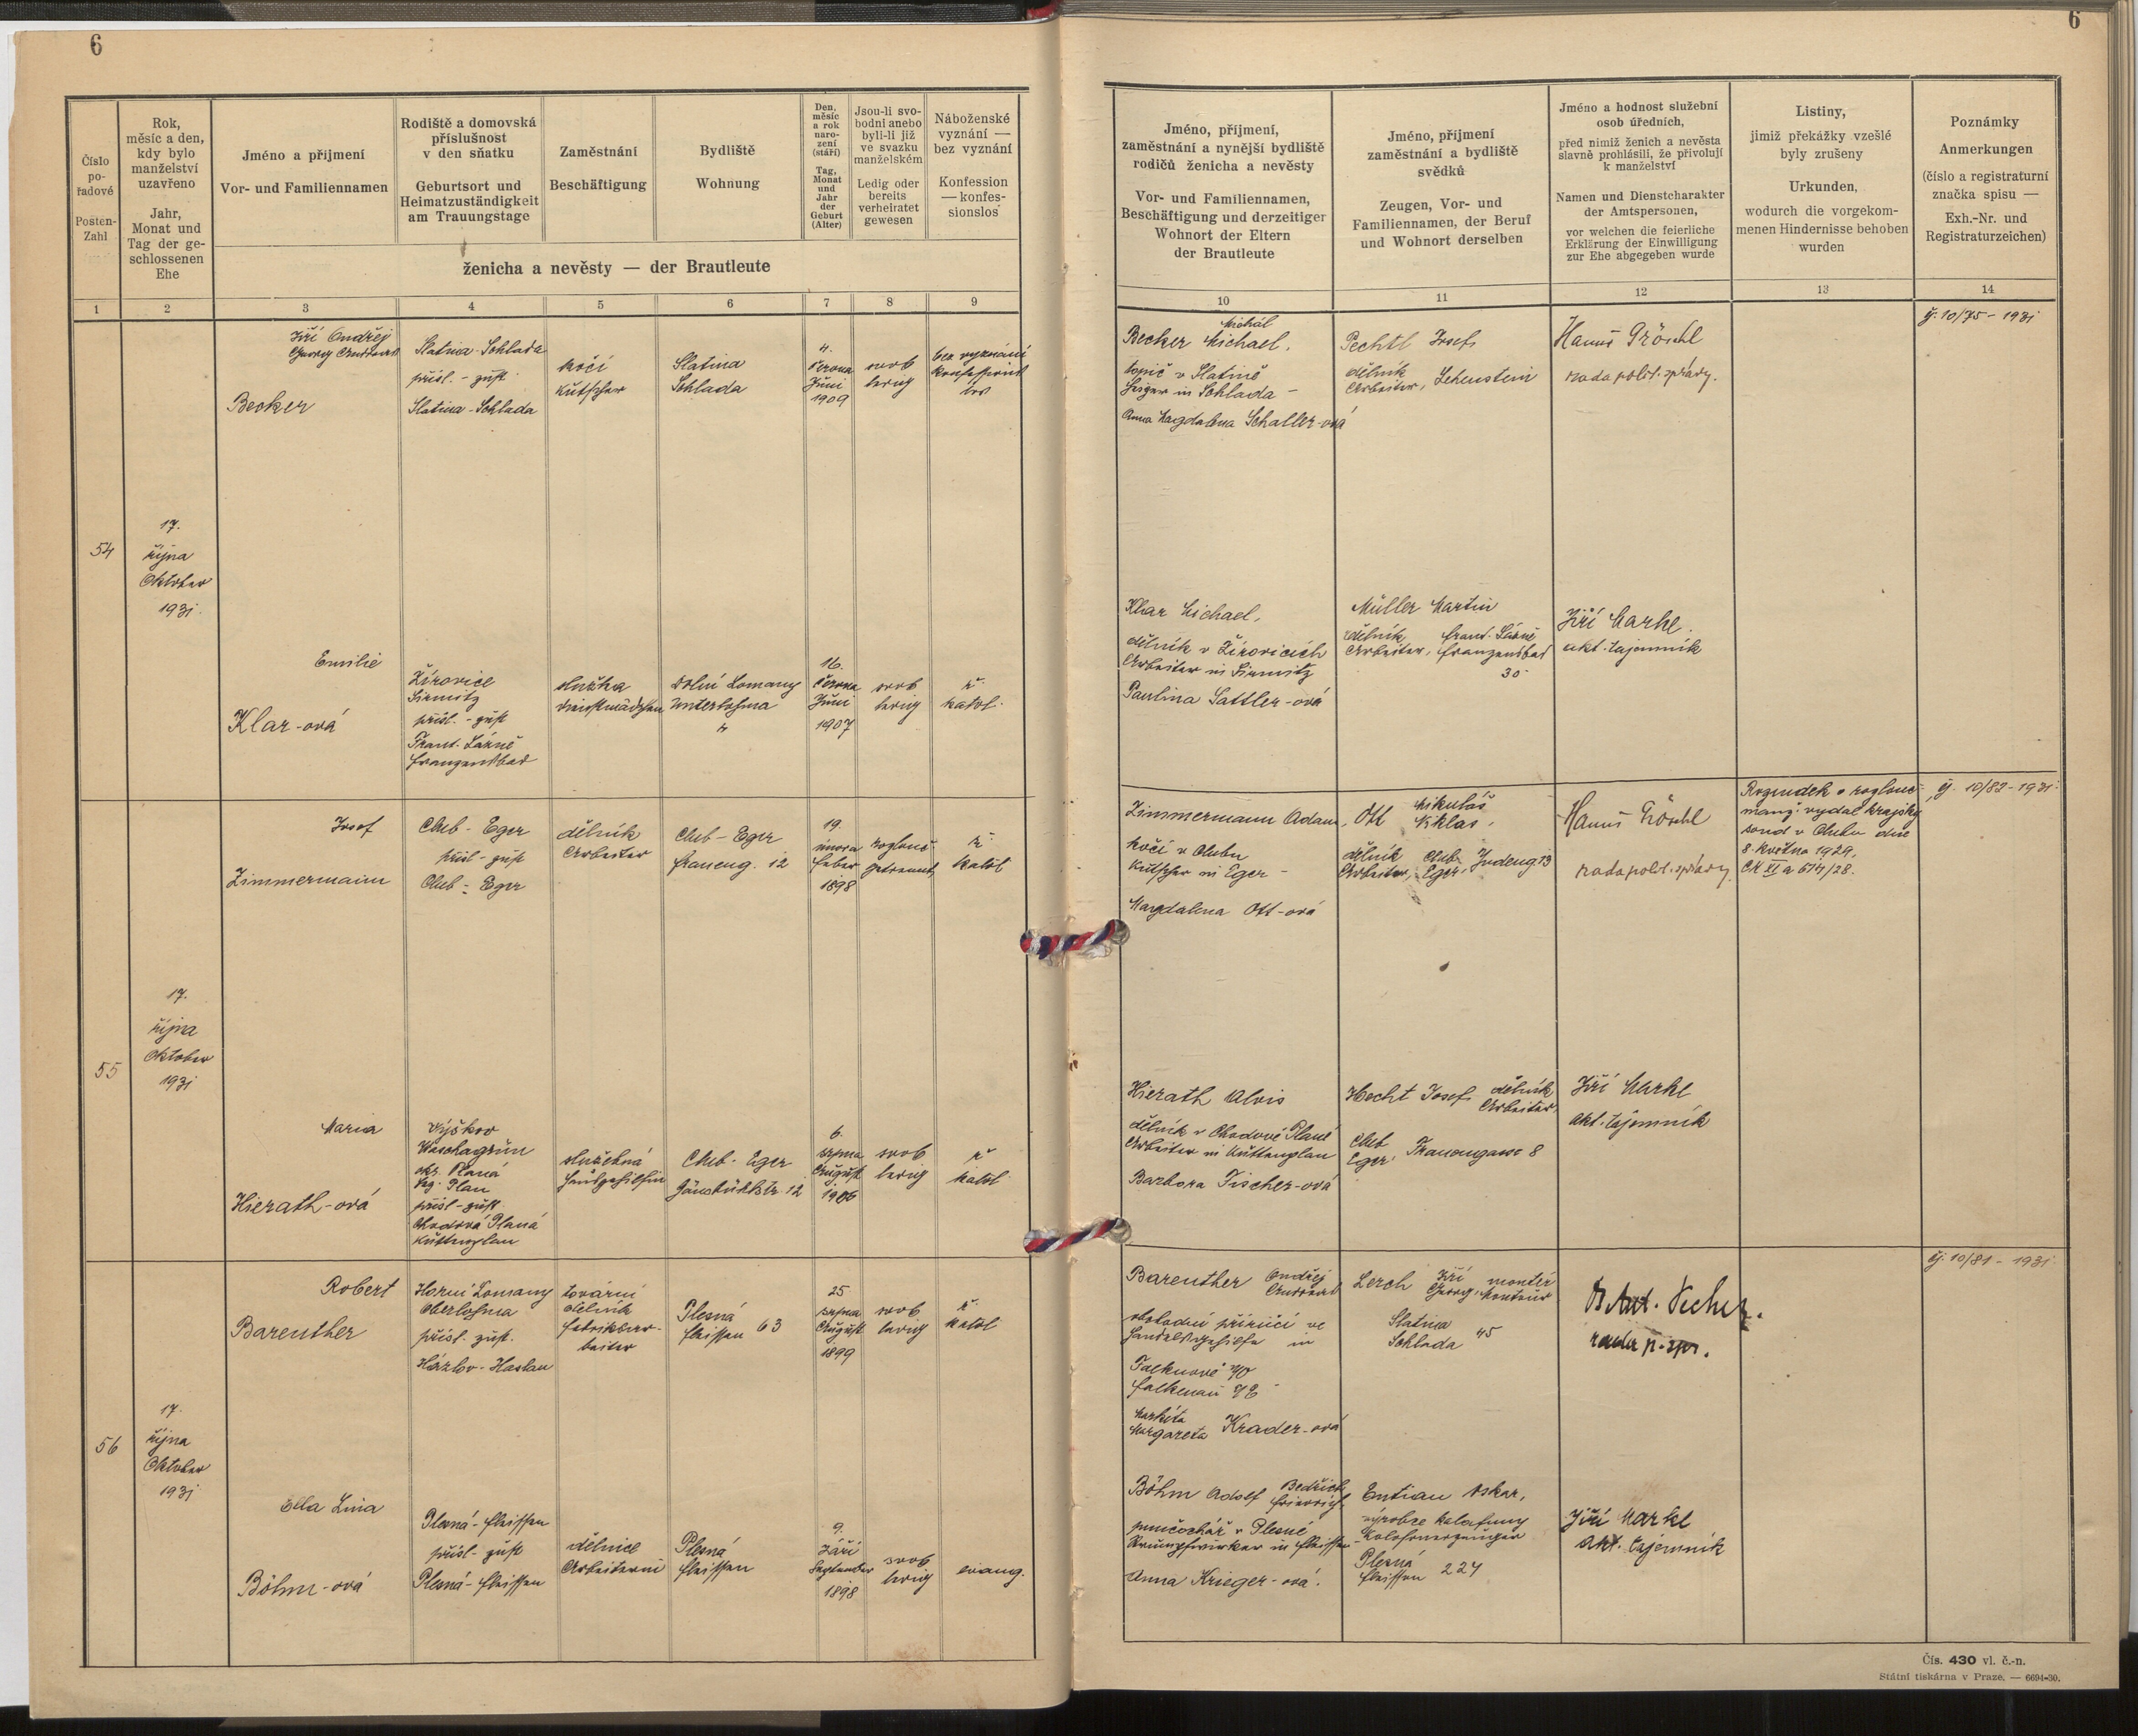 6
6
Číslo
po-
řadové
Posten-
Zahl
Rok,
měsíc a den,
kdy bylo
manželství
uzavřeno
Jahr,
Monat und
Tag der ge-
schlossenen
Ehe
Jméno a příjmení
Vor- und Familiennamen
Rodiště a domovská
příslušnost
v den sňatku
Geburtsort und
Heimatzuständigkeit
am Trauungstage
Zaměstnání
Beschäftigung
Bydliště
Wohnung
Den,
měsíc
a rok
naro-
zení
(stáří)
Tag,
Monat
und
Jahr
der
Geburt
(Alter)
Jsou-li svo-
bodni anebo
byli-li již
ve svazku
manželském
Ledig oder
bereits
verheiratet
gewesen
Náboženské
vyznání —
bez vyznání
Konfession
— konfes-
sionslos
ženicha a nevěsty — der Brautleute
Jméno, příjmení,
zaměstnání a nynější bydliště
rodičů ženicha a nevěsty
Vor- und Familiennamen,
Beschäftigung und derzeitiger
Wohnort der Eltern
der Brautleute
Jméno, příjmení
zaměstnání a bydliště
svědků
Zeugen, Vor- und
Familiennamen, der Beruf
und Wohnort derselben
Jméno a hodnost služební
osob úředních,
před nimiž ženich a nevěsta
slavně prohlásili, že přivolují
k manželství
Namen und Dienstcharakter
der Amtspersonen,
vor welchen die feierliche
Erklärung der Einwilligung
zur Ehe abgegeben wurde
Listiny,
jimiž překážky vzešlé
byly zrušeny
Urkunden,
wodurch die vorgekom-
menen Hindernisse behoben
wurden
Poznámky
Anmerkungen
(číslo a registraturní
značka spisu —
Exh.-Nr. und
Registraturzeichen)
1 2 3 4 5 6 7 8 9 10 11 12 13 14
54
17.
října
Oktober
1931.
Jiří Ondřej
Georg Andreas
Becker
Slatina-Schlada
přísl. - zust.
Slatina-Schlada
kočí
Kutscher
Slatina
Schlada
4.
června
Juni
1909
svob
ledig
bez vyznání
konfessions
los
Michál
Becker Michael,
topič v Slatině
Heizer in Schlada -
Anna Magdalena Schaller-ová
Pechtl Josef,
dělník
Arbeiter, Lehenstein
Hanuš Gröschl
rada polit. správy.
čj. 10/75 - 1931
Emilie
Klar-ová
Žírovice
Sirmitz
přísl. - zust
Frant. Lázně
Franzensbad
služka
Dienstmädchen
Dolní Lomany
Unterlohma
"
16.
června
Juni
1907
svob
ledig
ř.
katol.
Klar Michael,
dělník v Žírovicích
Arbeiter in Sirmitz
Paulina Sattler-ová
Müller Martin
dělník Frant. Lázně
Arbeiter, Franzensbad
30
Jiří Markl
akt. tajemník
55
17.
října
Oktober
1931
Josef
Zimmermann
Cheb - Eger
přísl - zust
Cheb - Eger
dělník
Arbeiter
Cheb - Eger
Fraueng. 12
19.
února
Feber
1898
rozlouč.
getrennt
ř.
katol
Zimmermann Adam,
kočí v Chebu
Kutscher in Eger -
Magdalena Ott-ová
Mikuláš
Ott Niklas,
dělník Cheb
Arbeiter, Eger, Judeng 13
Hanuš Gröschl
rada polit. správy
Rozsudek o rozlouč.
manž. vydal krajský
soud v Chebu dne
8. května 1929,
Ck XI a 614/28.
čj. 10/82 - 1931.
Maria
Hierath-ová
Výškov
Wischagrün
okr. Planá
Bez. Plan
přísl - zust
Chodová Planá
Kuttenplan
služebná
Hausgehilfin
Cheb - Eger
Gänsbühlstr. 12
6.
srpna
August
1906
svob
ledig
ř
katol
Hierath Alois
dělník v Chodové Plané
Arbeiter in Kuttenplan
Barbora Fischer-ová
Hecht Josef, dělník
Arbeiter,
Cheb
Eger, Frauengasse 8
Jiří Markl
akt. tajemník
56
17.
října
Oktober
1931
Robert
Bareuther
Horní Lomany
Oberlohma
přísl. zust.
Házlov - Haslau
tovární
dělník
Fabriksar-
beiter
Plesná
Fleissen 63
25
srpna
August
1899
svob
ledig
ř.
katol
Bareuther Ondřej
Andreas
obchodní příručí ve
Handelsgehilfe in
Falknově n/O
Falkenau a/E -
Markéta
Margareta Krader-ová
Lerch Jiří montér
Georg, Monteur
Slatina
Schlada 45
rada p. spr.
čj. 10/81 - 1931.
Ella Lina
Böhm-ová
Plesná - Fleissen
přísl - zust
Plesná - Fleissen
dělnice
Arbeiterin
Plesná
Fleissen
9.
září
September
1898
svob
ledig
evang.
Böhm Adolf Bedřich
Friedrich
punčochář v Plesné
Strumpfwirker in Fleissen -
Anna Krieger-ová.
Entian Oskar,
výrobce kalafuny
Plesná
Fleissen 224
Jiří Markl
akt. tajemník
Čís. 430 vl. č.-n.
Státní tiskárna v Praze. — 6694-30.